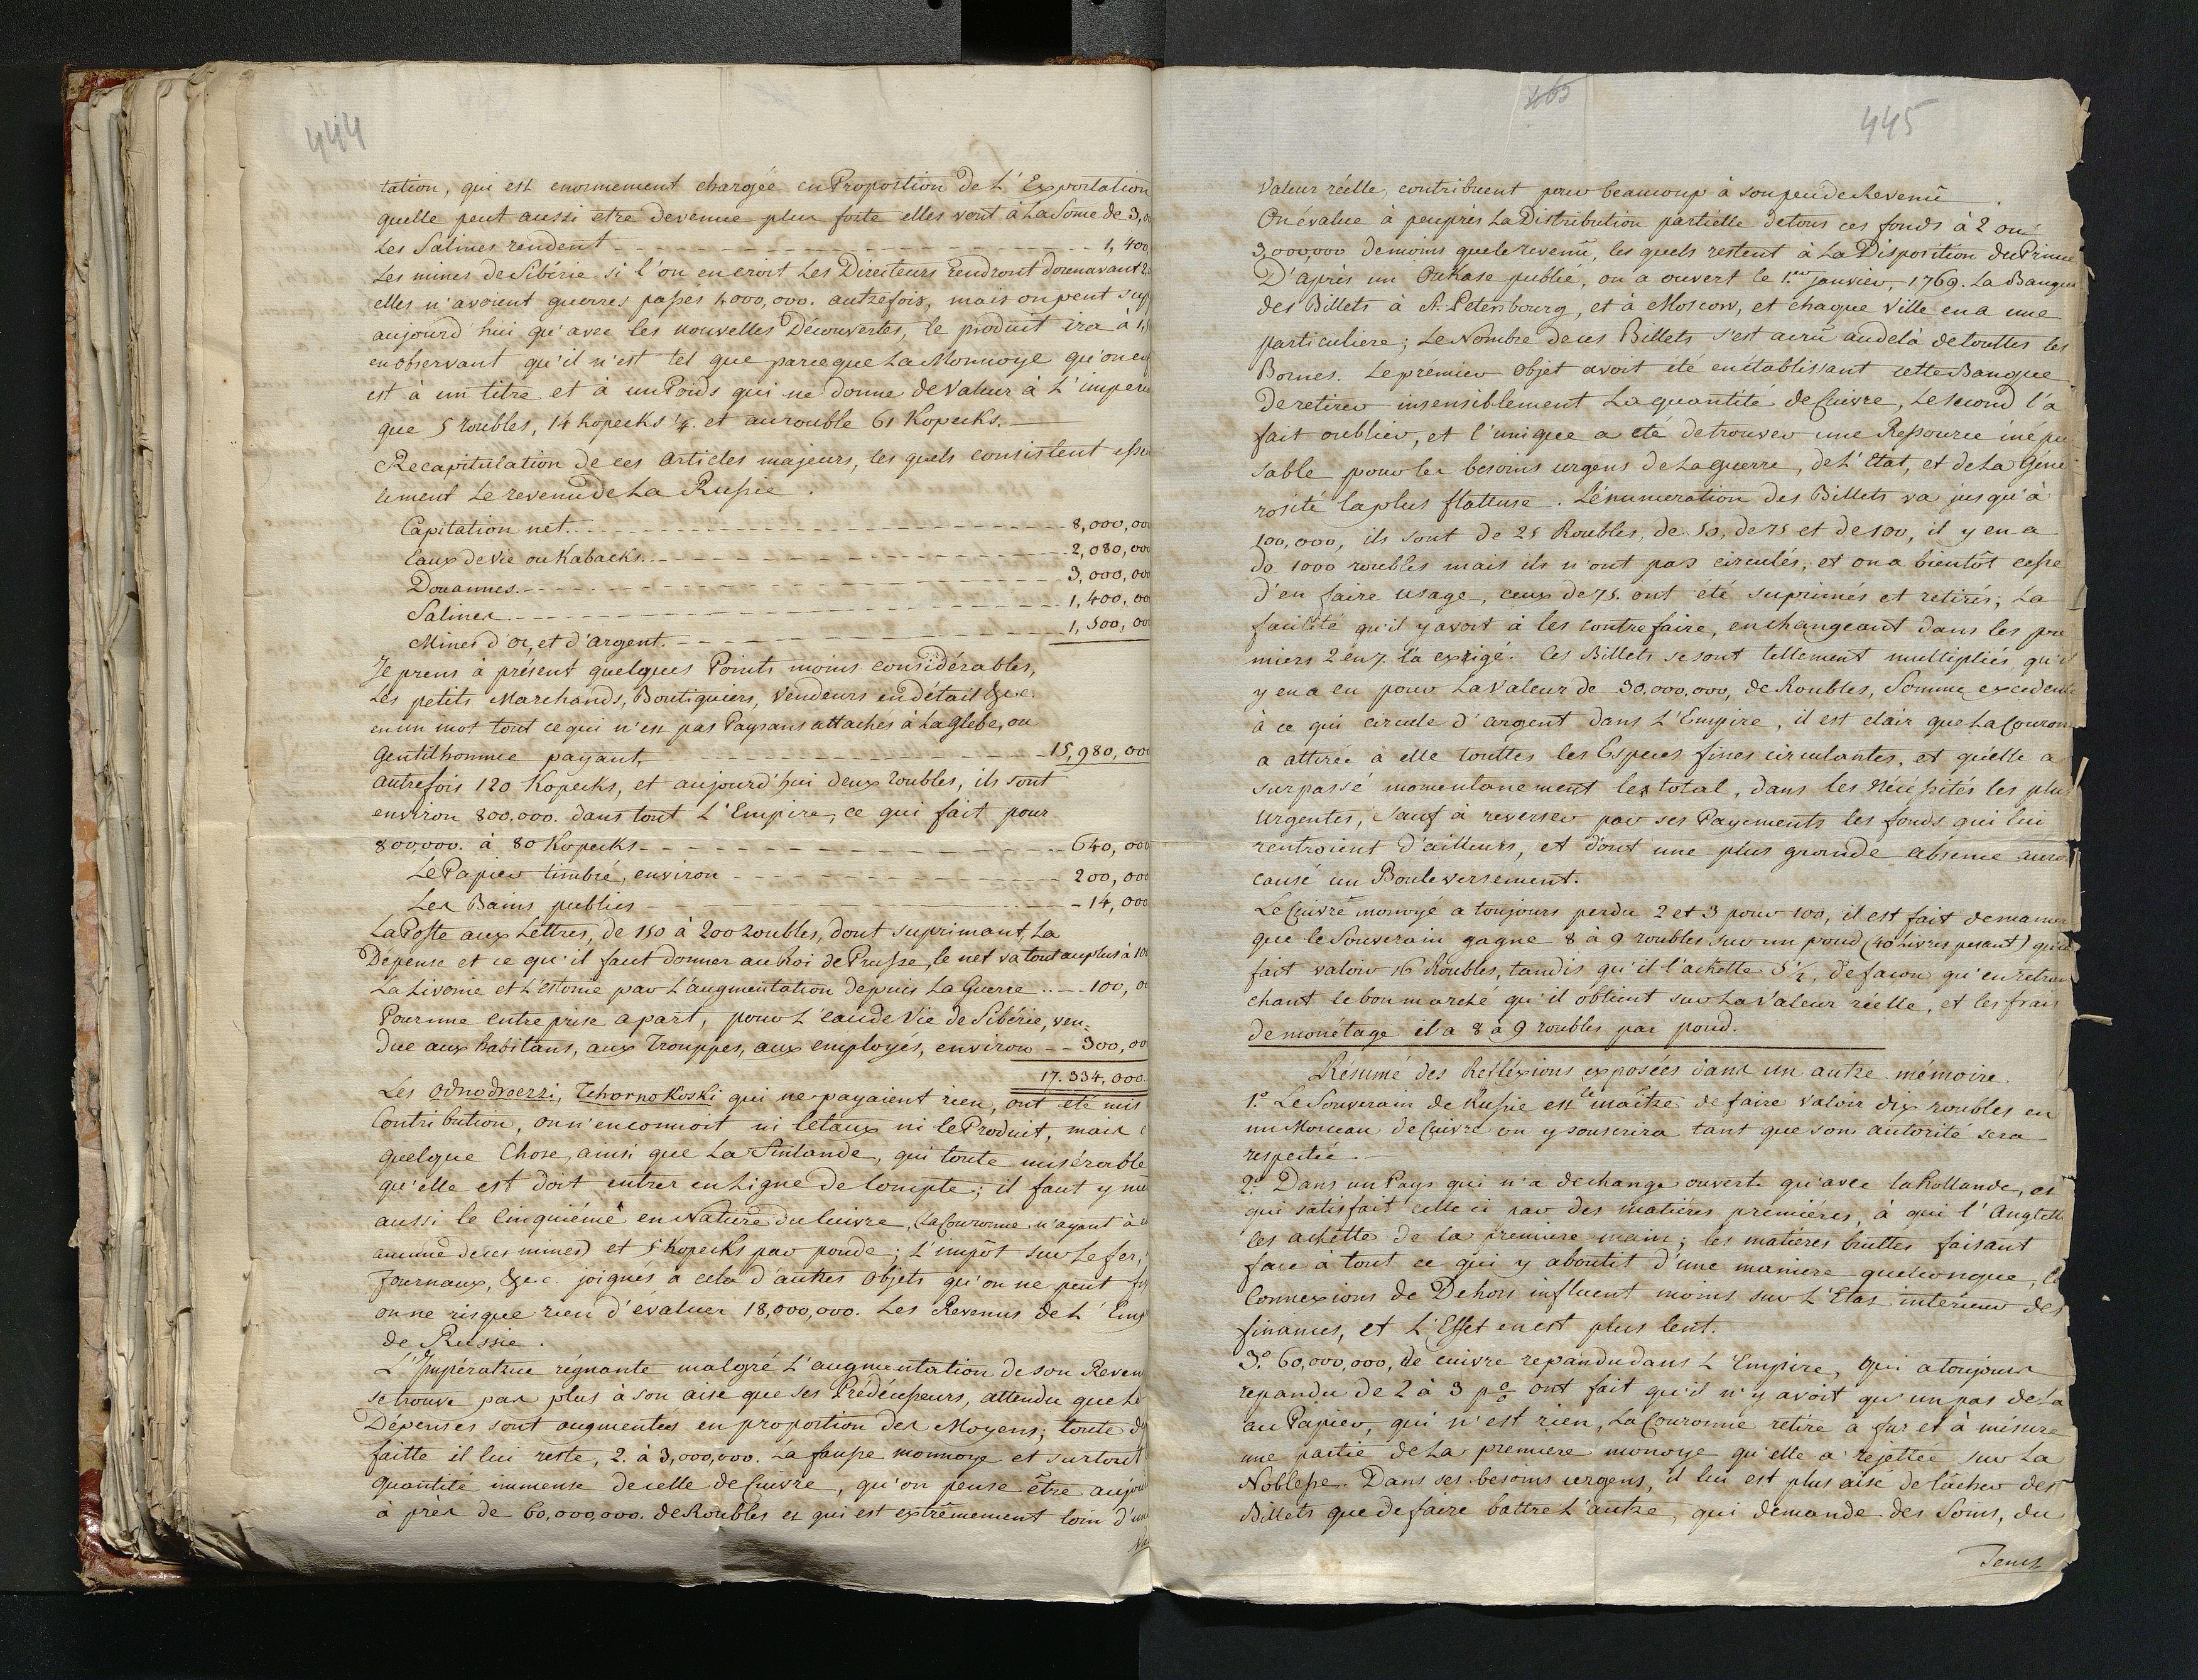 444
tation, qui est enormement chargée en Proportion de L'Exportation
quelle peut aussi etre devenue plus forte elles vont à La Some de 3,0
Les Salines rendent - - - 1, 400
Les mines de Sibérie si l'on en croit Les Directeurs rendront dorenavant 2
elles n'avoient guerres passés 1,000,000. autrefois, mais on peut sup
aujourd'hui qu'avec les nouvelles Découvertes, le produit ira à 1,5
en observant qu'il n'est tel que parceque La Monnoye qu'on en
est à un titre et à un Poids qui ne donne de Valeur à L'imper
que 5 roubles, 14 Kopecks 1/4. et au rouble 61 Kopecks.
Recapitulation de ces Articles majeurs, les quels consistent essen
lement Le revenu de La Russie.
Capitation net. - - - 8,000,00
Eaux de Vie ou Kabacks. - - - 2,080,000
Douannes. - - - 3,000,00
Salines - - - 1,400,00
Mines d'or, et d'argent. - - - 1,500,00
Je prens à présent quelques Points moins considérables,
Les petits Marchands, Boutiquiers, Vendeurs en détail &c.
en un mot tout ce qui n'est pas Paysans attachés à La glebe, ou
Gentilhomme payant, - - - 15,980,000
autrefois 120 Kopecks, et aujourd'hui deux roubles, ils sont
environ 800,000. dans tout L'Empire, ce qui fait pour
800,000. à 80 Kopecks - - - 640,000
Le Papier timbré, environ - - - 200,000
Les Bains publics - - - 14,000
La Poste aux Lettres, de 150 à 200 roubles, dont suprimant, La
Dépense et ce qu'il faut donner au Roi de Prusse, le net va tout au plus à 10
La Livonie et L'Estonie par L'augmentation depuis La Guerre .. - 100,0
Pour une entreprise apart, pour L'eau de Vie de Sibérie, ven=
due aux habitans, aux Trouppes, aux employés, environ - - 300,00
17.334,000
Les Odnodvoerzi, Tchornokoski qui ne payaient rien, ont été mis
Contribution, on n'en connoit ni le taux ni le Produit, mais c
quelque Chose, ainsi que La Finlande, qui toute misérable
qu'elle est doit entrer en Ligne de Compte; il faut y
aussi le Cinquiéme en Nature du Cuivre, (La Couronne n'ayant à
aucune de ces mines) et 5 Kopecks par poude; L'impôt sur Le fer,
Fournaux, &c. joignés à cela d'autres Objets qu'on ne peut
on ne risque rien d'évaluer 18,000,000. Les Revenus de L'Emp
de Russie.
L'Impératrice régnante malgré L'augmentation de son Reven
se trouve pas plus à son aise que ses Prédécesseurs, attendu que Le
Dépenses sont augmentées en proportion des Moyens; toute d
faitte il lui reste, 2. à 3,000,000. La fausse monnoye et surtout
quantité immense de celle de Cuivre, qu'on pense être aujour
à près de 60,000,000. de Roubles et qui est extrêmement loin d'une
Va
465
445
Valeur réelle, contribuent pour beaucoup à son peu de Revenu
On évalue à peuprès La Distribution partielle de tous ces fonds à 2 ou
3,000,000 de moins que le revenu, les quels restent à La Disposition du Prince
D'après un Oukase publié, on a ouvert le 1.er Janvier, 1769. La Banque
des Billets à St. Petersbourg, et à Moscow, et chaque Ville en a une
particuliere; Le Nombre de ces Billets s'est acrû audelà de touttes les
Bornes. Le premier Objet avoit été en établissant cette Banque
De retirer insensiblement La quantité de Cuivre, Le second l'a
fait oublier, et l'unique a été de trouver une Ressource inépui
sable pour les besoins urgens de La Guerre, de L'Etat, et de La Géné
rosité la plus flatteuse. L'énumeration des Billets va jusqu'à
100,000, ils sont de 25 Roubles, de 50, de 75 et de 100, il y en a
de 1000 roubles mais ils n'ont pas circulés, et on a bientôt cessé
d'en faire usage, ceux de 75. ont été suprimés et retirés; La
facilité qu'il y avoit à les contrefaire, en changeant dans les pre
miers 2 en 7. l'a exigé. Ces Billets se sont tellement multipliés, qu'il
y en a eu pour La Valeur de 30,000,000, de Roubles, Somme excedente
à ce qui circule d'argent dans L'Empire, il est clair que La Couronne
a attirée à elle touttes les Especes fines circulantes, et qu'elle a
surpassé momentanement le total, dans les Nécéssités les plus
Urgentes, sauf à reverser par ses Payements les fonds qui lui
rentroient d'ailleurs, et dont une plus grande absence auroi
causé un Bouleversement.
Le Cuivre monoyé a toujours perdu 2 et 3 pour 100, il est fait de manier
que le Souverain gagne 8 à 9 roubles sur un poud (40 Livres pesant) qu'il
fait valoir 16 Roubles, tandis qu'il l'achette 5 1/2, de facon qu'en retran
chant le bon marché qu'il obtient sur La Valeur réelle, et les frais
de monétage il a 8 à 9 roubles par poud.
Résumé des Refléxions exposées dans un autre mémoire.
1.° Le Souverain de Russie est le maître de faire valoir dix roubles en
un Morceau de Cuivre on y souscrira tant que son autorité sera
respectée.
2.° Dans un Pays qui n'a de change ouverte qu'avec la Hollande, et
qui satisfait celle ci par des matiéres premiéres, à qui l'Anglett
les achette de la premiere main; les matiéres bruttes faisant
face à tout ce qui y aboutit d'une maniere quelconque, les
Connexions de Dehors influent moins sur L'Etas intérieur des
finances, et L'Effet en est plus lent.
3.° 60,000,000, de cuivre repandu dans L'Empire, qui a toujours
repandu de 2 à 3 p% ont fait qu'il n'y avoit qu'un pas de La
au Papier, qui n'est rien, La Couronne retire à fur et à mésure
une partie de La premiere monoye qu'elle a rejettée sur La
Noblesse. Dans ses besoins urgens, il lui est plus aisé de lâcher des
Billets que de faire battre L'autre, qui demande des Soins, du
Tems